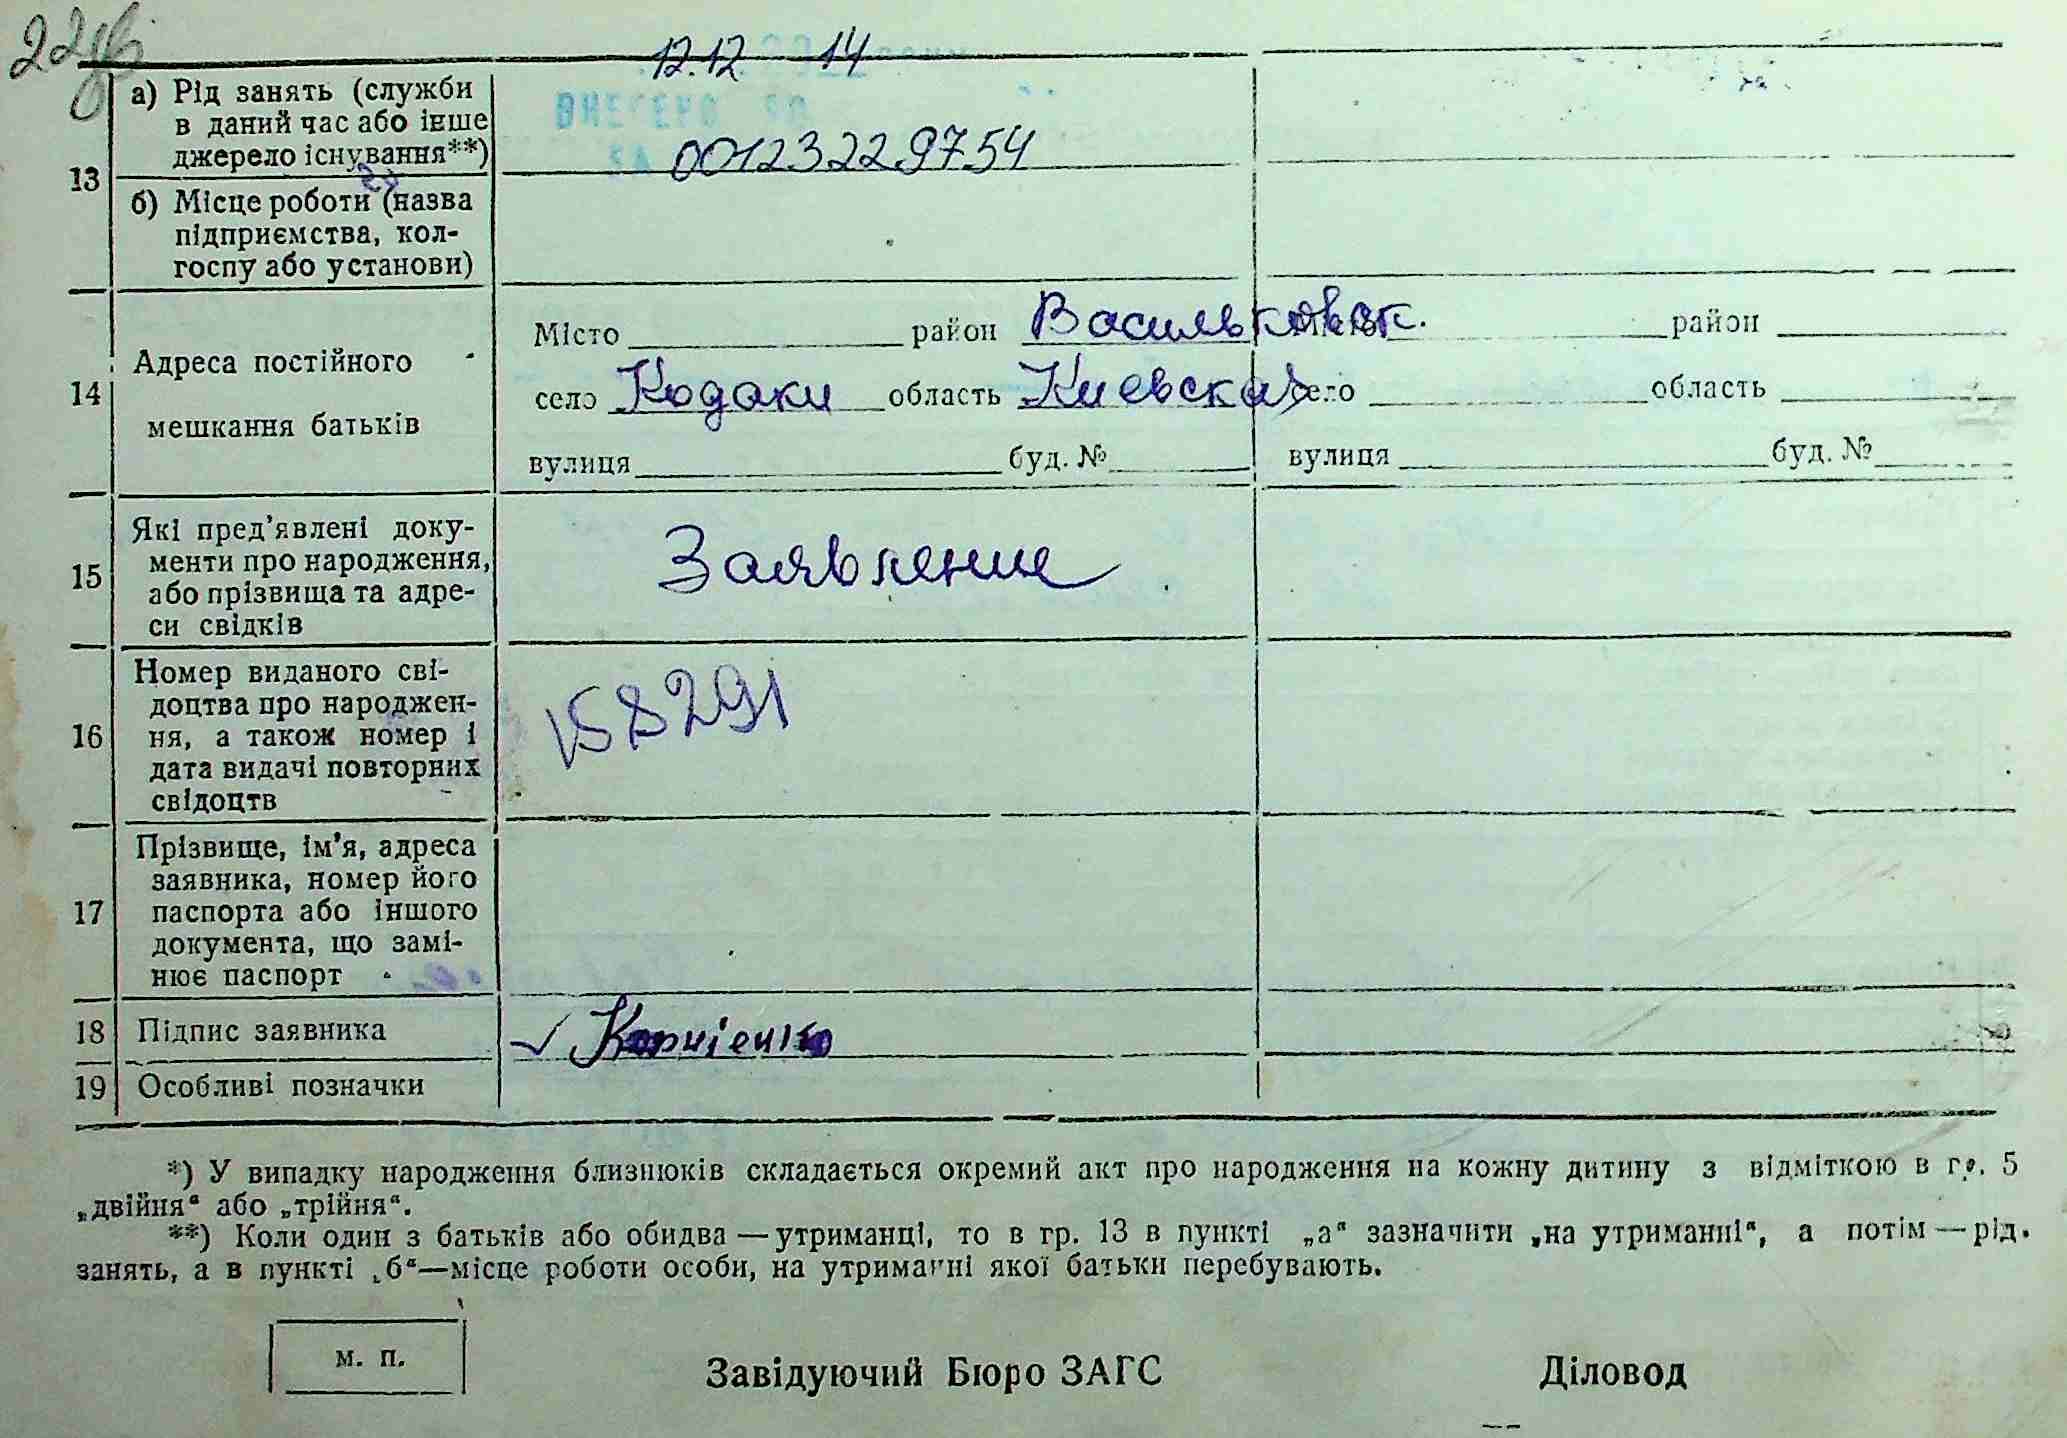 12.12 14
а) Рід занять (служби
в даний час або інше
джерело існування**)
ВНЕСЕНО
00123229754
13
б) Місце роботи (назва
підприємства, кол-
госпу або установи)
14
Адреса постійного
мешкання батьків
Місто район Васильковск. район
село Кодаки область Киевская село область
вулиця буд. № вулиця буд. №
15
Які пред'явлені доку-
менти про народження,
або прізвища та адре-
си свідків
Заявление
16
Номер виданого сві-
доцтва про народжен-
ня, а також номер і
дата видачі повторних
свідоцтв
158291
17
Прізвище, ім'я, адреса
заявника, номер його
паспорта або іншого
документа, що замі-
нює паспорт
18 Підпис заявника Корнієнко
19 Особливі позначки
*) У випадку народження близнюків складається окремий акт про народження на кожну дитину з відміткою в гр. 5
„двійня“ або „трійня“.
**) Коли один з батьків або обидва — утриманці, то в гр. 13 в пункті „а“ зазначити „на утриманні“, а потім — рід.
занять, а в пункті „б“—місце роботи особи, на утриманні якої батьки перебувають.
м. п.
Завідуючий Бюро ЗАГС Діловод